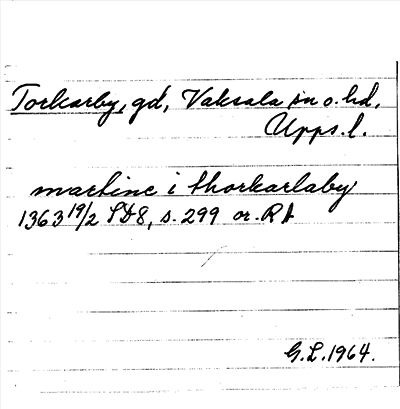 Torkarby, gd, Vaksala sn o. hd,
Upps. l.
martinc i thorkarlaby
1363 19/2 SD8, s. 299 or. RA
G.L. 1964.